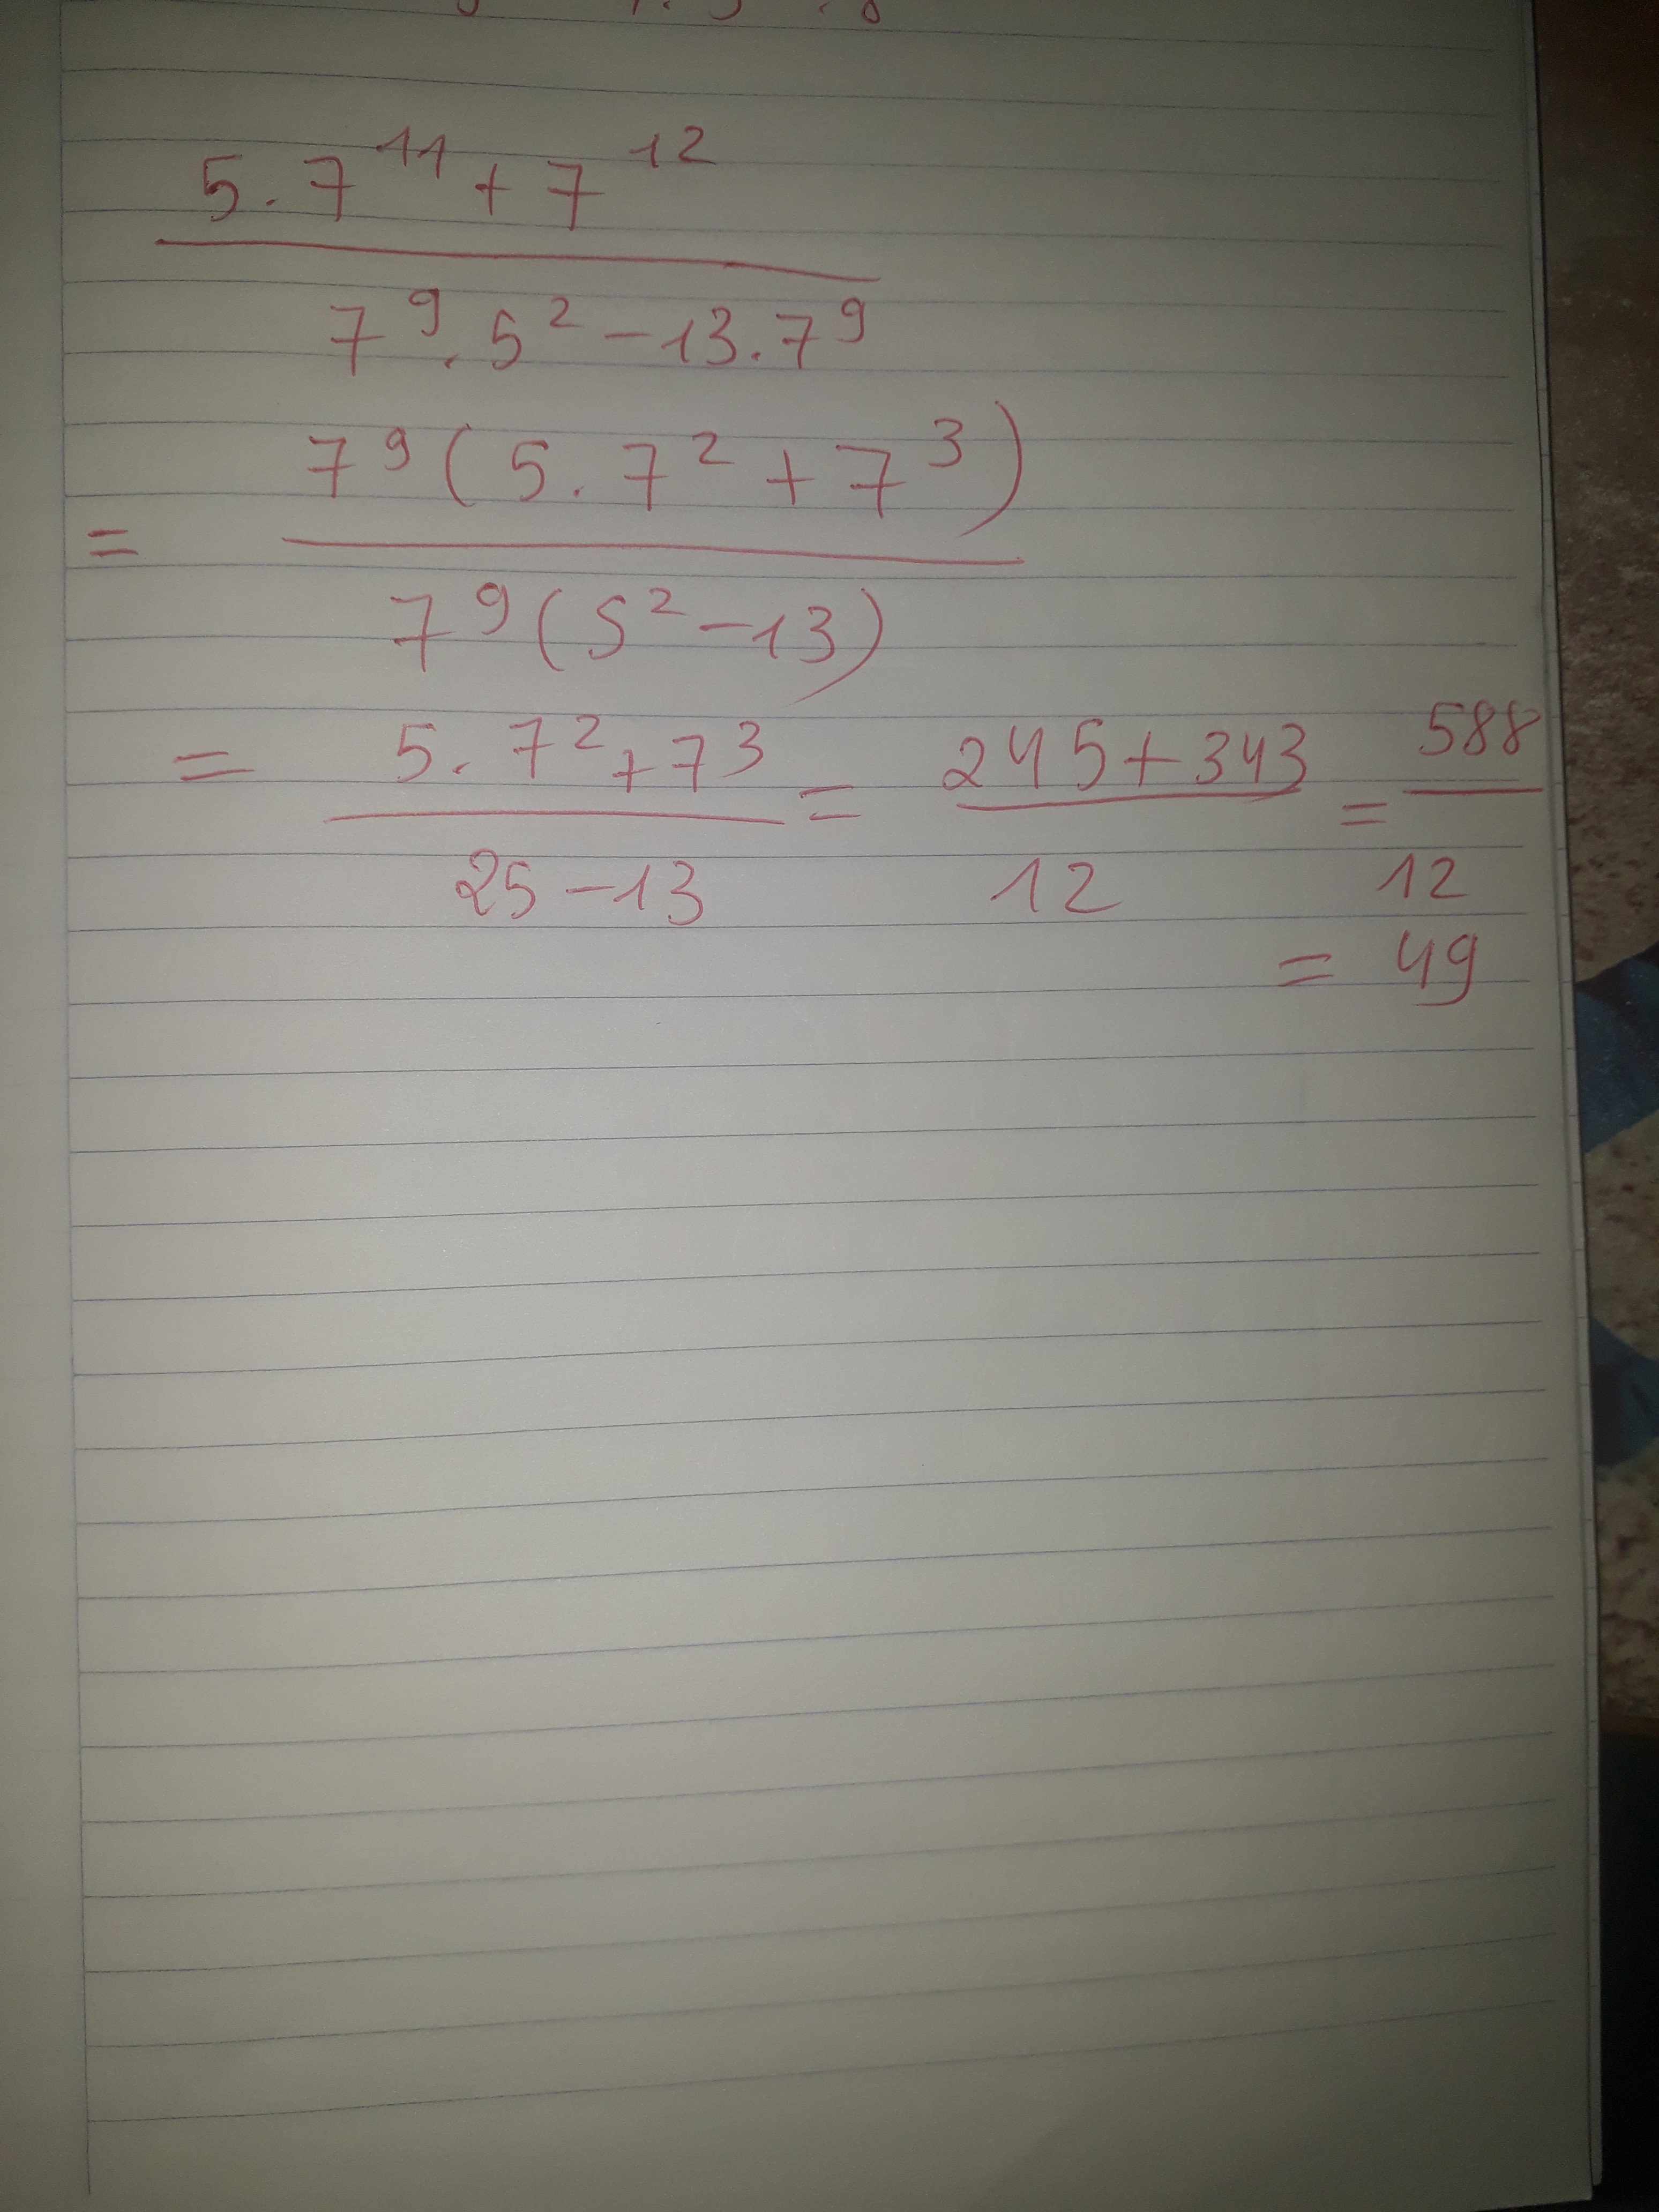 5.7^11 + 7^12
7^9.5^2 - 13.7^9
= 7^9(5.7^2 + 7^3)
7^9(5^2 - 13)
= 5.7^2 + 7^3 = 245 + 343 = 588
25 - 13 12 12
= 49